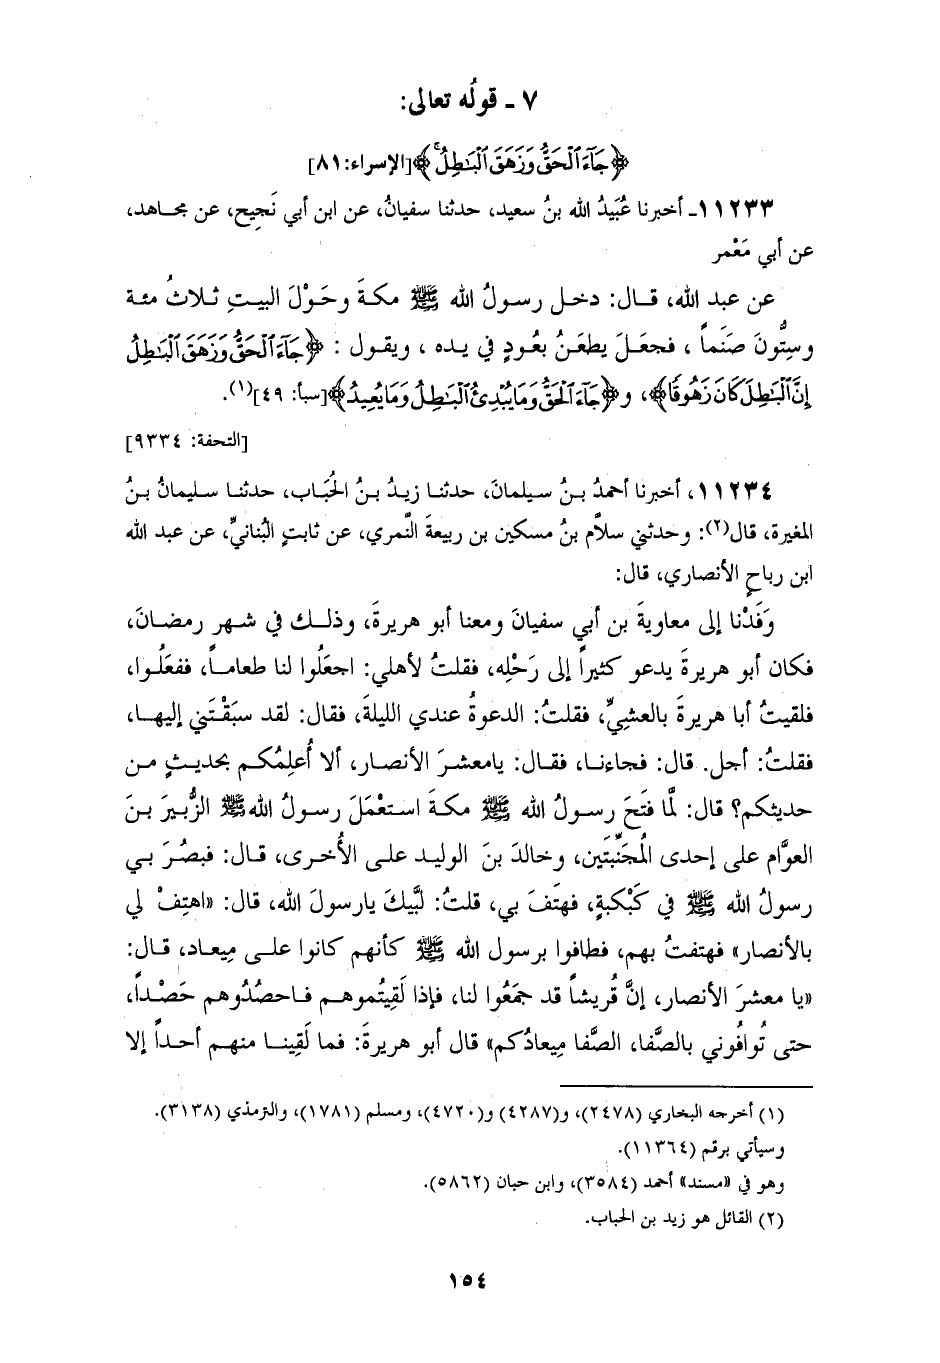 ٧ ـ قولُه تعالى:
﴿جَآءَ ٱلْحَقُّ وَزَهَقَ ٱلْبَـٰطِلُ ۚ﴾[الإسراء: ٨١]
١١٢٣٣ـ أخبرنا عُبَيدُ الله بنُ سعيد، حدثنا سفيانُ، عن ابن أبي نَجيح، عن مجاهد،
عن أبي مَعْمر
عن عبد الله، قال: دخل رسولُ الله ﷺ مكةَ وحَوْلَ البيتِ ثلاثُ مئة
وستُّونَ صَنَماً، فجعلَ يطعَنُ بعُودٍ في يده، ويقول: ﴿جَآءَ ٱلْحَقُّ وَزَهَقَ ٱلْبَـٰطِلُ
إِنَّ ٱلْبَـٰطِلَ كَانَ زَهُوقًا﴾، و﴿جَآءَ ٱلْحَقُّ وَمَا يُبْدِئُ ٱلْبَـٰطِلُ وَمَا يُعِيدُ﴾[سبأ: ٤٩](١).
[التحفة: ٩٣٣٤]
١١٢٣٤، أخبرنا أحمدُ بنُ سيلمانَ، حدثنا زيدُ بنُ الحُبَاب، حدثنا سليمانُ بنُ
المغيرة، قال(٢): وحدثني سلاَّم بنُ مسكين بن ربيعةَ النَّمري، عن ثابتٍ البُنانيِّ، عن عبد الله
ابن رباحٍ الأنصاري، قال:
وَفَدْنا إلى معاويةَ بن أبي سفيانَ ومعنا أبو هريرةَ، وذلك في شهر رمضانَ،
فكان أبو هريرةَ يدعو كثيراً إلى رَحْلِه، فقلتُ لأهلي: اجعَلُوا لنا طعاماً، ففعَلُوا،
فلقيتُ أبا هريرةَ بالعشيِّ، فقلتُ: الدعوةُ عندي الليلةَ، فقال: لقد سبَقْتَني إليها،
فقلتُ: أجل. قال: فجاءنا، فقال: يامعشرَ الأنصار، ألا أُعلِمُكم بحديثٍ من
حديثكم؟ قال: لمَّا فتَحَ رسولُ الله ﷺ مكةَ استعْمَلَ رسولُ الله ﷺ الزُّبيرَ بنَ
العوَّام على إحدى المُجَنِّبَتَين، وخالدَ بنَ الوليد على الأُخرى، قال: فبصُرَ بي
رسولُ الله ﷺ في كَبْكبةٍ، فهتَفَ بي، قلتُ: لبَّيكَ يارسولَ الله، قال: «اهتِفْ لي
بالأنصار» فهتفتُ بهم، فطافوا برسول الله ﷺ كأنهم كانوا على مِيعاد، قال:
«يا معشرَ الأنصار، إنَّ قُريشاً قد جمَعُوا لنا، فإذا لَقِيتُموهم فاحصُدُوهم حَصْداً،
حتى تُوافُوني بالصَّفا، الصَّفا مِيعادُكم» قال أبو هريرةَ: فما لَقِينا منهم أحداً إلا
(١) أخرجه البخاري (٢٤٧٨)، و(٤٢٨٧) و(٤٧٢٠)، ومسلم (١٧٨١)، والترمذي (٣١٣٨).
وسيأتي برقم (١١٣٦٤).
وهو في «مسند» أحمد (٣٥٨٤)، وابن حبان (٥٨٦٢).
(٢) القائل هو زيد بن الحباب.
١٥٤